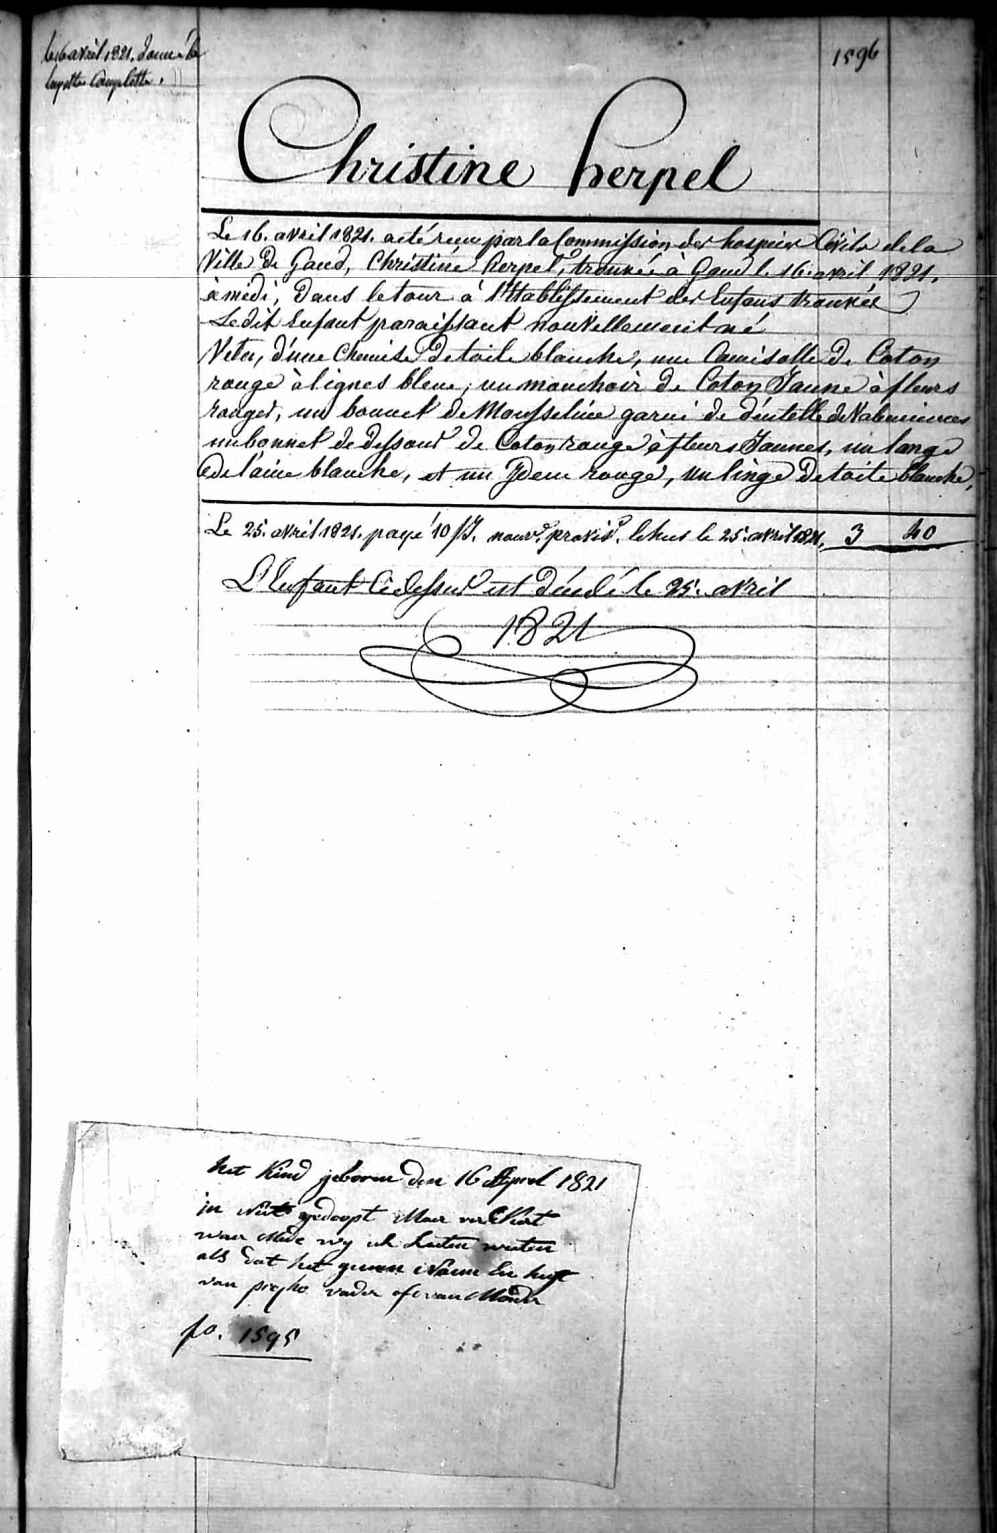 le 16 avril 1821. donné la
layette Complette.
1596
Christine herpel
Le 16. avril 1821. a été reçu par la Commission des hospices Civils de la
Ville de Gand, Christine herpel, trouvée à Gand le 16. avril 1821.
à midi, Dans le tour à l'Etablissement des Enfans trouvés
Ledit Enfant paraissant nouvellement né
Vetu, d'une Chemise De toile blanche, une Camisolle De Coton
rouge à lignes bleue, un mouchoir de Coton Jaune à fleurs
rouges, un bonnet de Mousseline garni de dentelle de Valenciences
un bonnet de dessous de Coton rouge à fleurs Jaunes, un lange
De laine blanche, et un Idem rouge, un linge De toile blanche,
Le 25. avril 1821. payé 10 le 25. avril 1821. 3 40
L'Enfant Cidessus est décédé le 25. avril
1821
het Kind geboren den 16 April 1821
in niet gedoopt Maer
waer Mede wy uL Laeten weeten
als dat het geenen Naem En heeft
van vader of van Moeder
fo. 1595